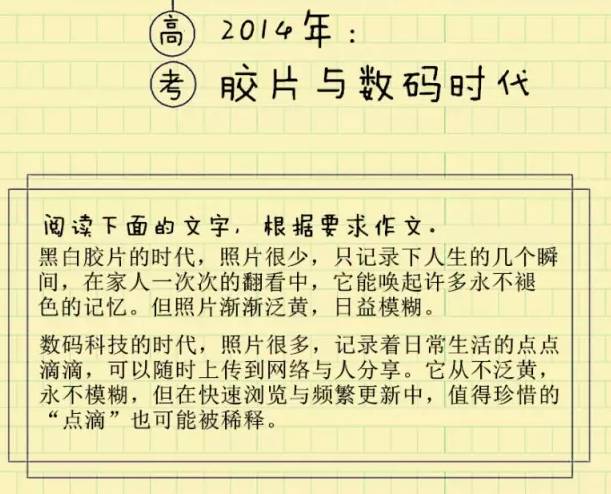 高 2014年：
考 胶片与数码时代
阅读下面的文字，根据要求作文。
黑白胶片的时代，照片很少，只记录下人生的几个瞬
间，在家人一次次的翻看中，它能唤起许多永不褪
色的记忆。但照片渐渐泛黄，日益模糊。
数码科技的时代，照片很多，记录着日常生活的点点
滴滴，可以随时上传到网络与人分享。它从不泛黄，
永不模糊，但在快速浏览与频繁更新中，值得珍惜的
“点滴”也可能被稀释。